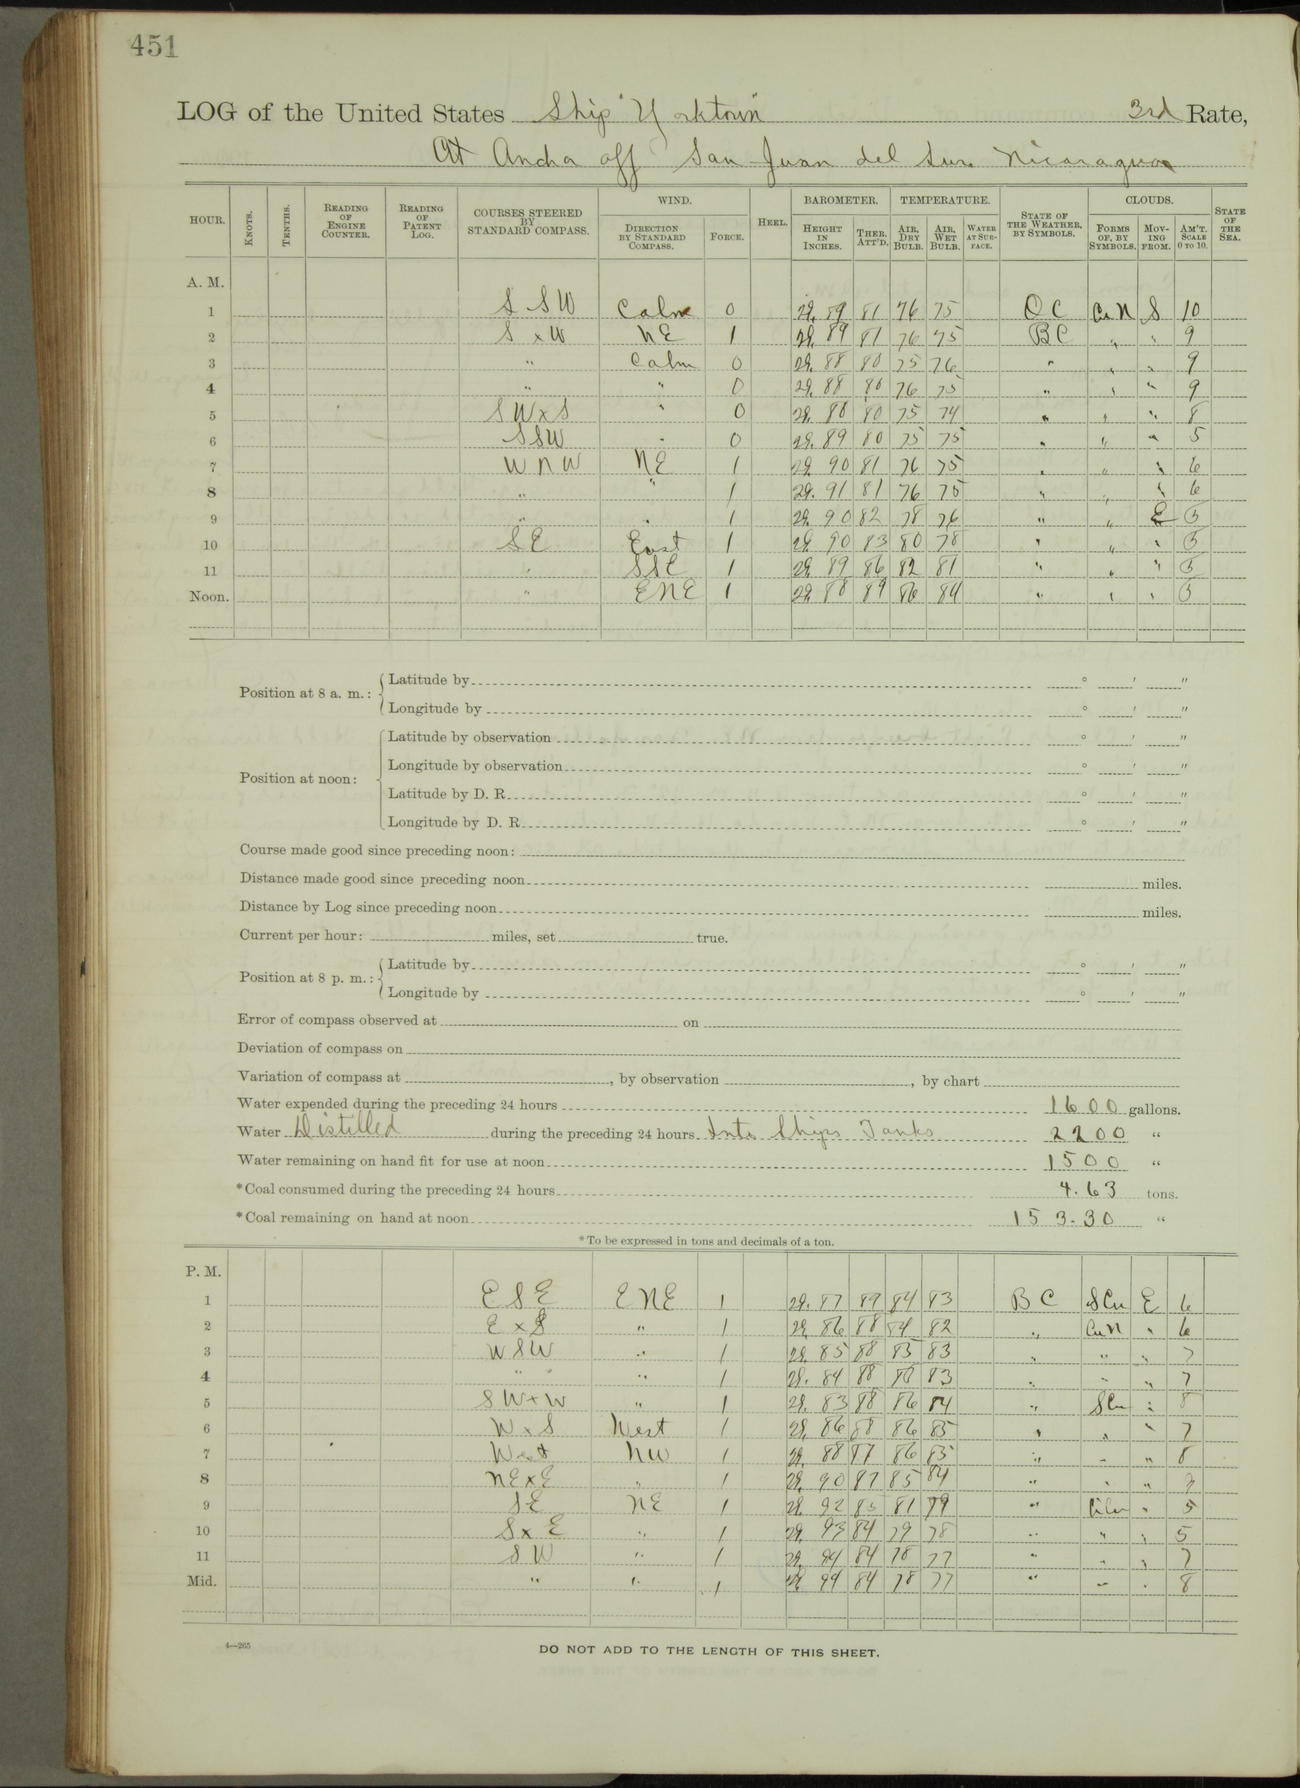 451
LOG of the United States Ship "Yorktown" 3rd Rate,
At Anchor off San Juan del Sur Nicaragua
HOUR. KNOTS. TENTHS. READING OF ENGINE COUNTER. READING OF PATENT LOG. COURSES STEERED BY STANDARD COMPASS. WIND. DIRECTION BY STANDARD COMPASS. FORCE. HEEL. BAROMETER. HEIGHT IN INCHES. THER. ATT'D. TEMPERATURE. AIR, DRY BULB. AIR, WET BULB. WATER AT SURFACE. STATE OF THE WEATHER, BY SYMBOLS. CLOUDS. FORMS OF, BY SYMBOLS. MOVING FROM. AM'T. SCALE 0 TO 10. STATE OF THE SEA.
A. M.
1 SSW Calm 0 29.89 81 76 75 OC CuN S 10
2 SxW NE 1 29.89 81 76 75 BC " " 9
3 " Calm 0 29.88 80 75 76 " " " 9
4 " " 0 29.88 80 76 75 " " " 9
5 SWxS " 0 29.88 80 75 74 " " " 8
6 SSW " 0 29.89 80 75 75 " " " 5
7 WNW NE 1 29.90 81 76 75 " " " 6
8 " " 1 29.91 81 76 75 " " " 6
9 " " 1 29.90 82 78 76 " " E 5
10 SE East 1 29.90 83 80 78 " " " 5
11 " SSE 1 29.89 86 82 81 " " " 5
Noon. " ENE 1 29.88 89 86 84 " " " 5
Position at 8 a. m.: Latitude by ° ' "
Longitude by ° ' "
Position at noon: Latitude by observation ° ' "
Longitude by observation ° ' "
Latitude by D. R. ° ' "
Longitude by D. R. ° ' "
Course made good since preceding noon:
Distance made good since preceding noon miles.
Distance by Log since preceding noon miles.
Current per hour: miles, set true.
Position at 8 p. m.: Latitude by ° ' "
Longitude by ° ' "
Error of compass observed at on
Deviation of compass on
Variation of compass at , by observation , by chart
Water expended during the preceding 24 hours 1600 gallons.
Water Distilled during the preceding 24 hours Into Ships Tanks 2200 "
Water remaining on hand fit for use at noon 1500 "
*Coal consumed during the preceding 24 hours 4.63 tons.
*Coal remaining on hand at noon 153.30 "
*To be expressed in tons and decimals of a ton.
P. M.
1 ESE ENE 1 29.87 89 84 83 BC SCu E 6
2 ExS " 1 29.86 88 84 82 " CuN " 6
3 WSW " 1 29.85 88 85 83 " " " 7
4 " " 1 29.84 88 83 " " " 7
5 SWxW " 1 29.83 88 86 84 " SCu " 8
6 WxS West 1 29.86 88 86 85 " " " 7
7 West NW 1 29.88 87 86 85 " " " 8
8 NExE " 1 29.90 87 85 84 " " "
9 SE NE 1 29.92 85 81 79 " " 5
10 SxE " 1 29.93 84 79 78 " " " 5
11 SW " 1 29.94 84 78 77 " " " 7
Mid. " " 1 29.94 84 78 77 " " " 8
4—265
DO NOT ADD TO THE LENGTH OF THIS SHEET.